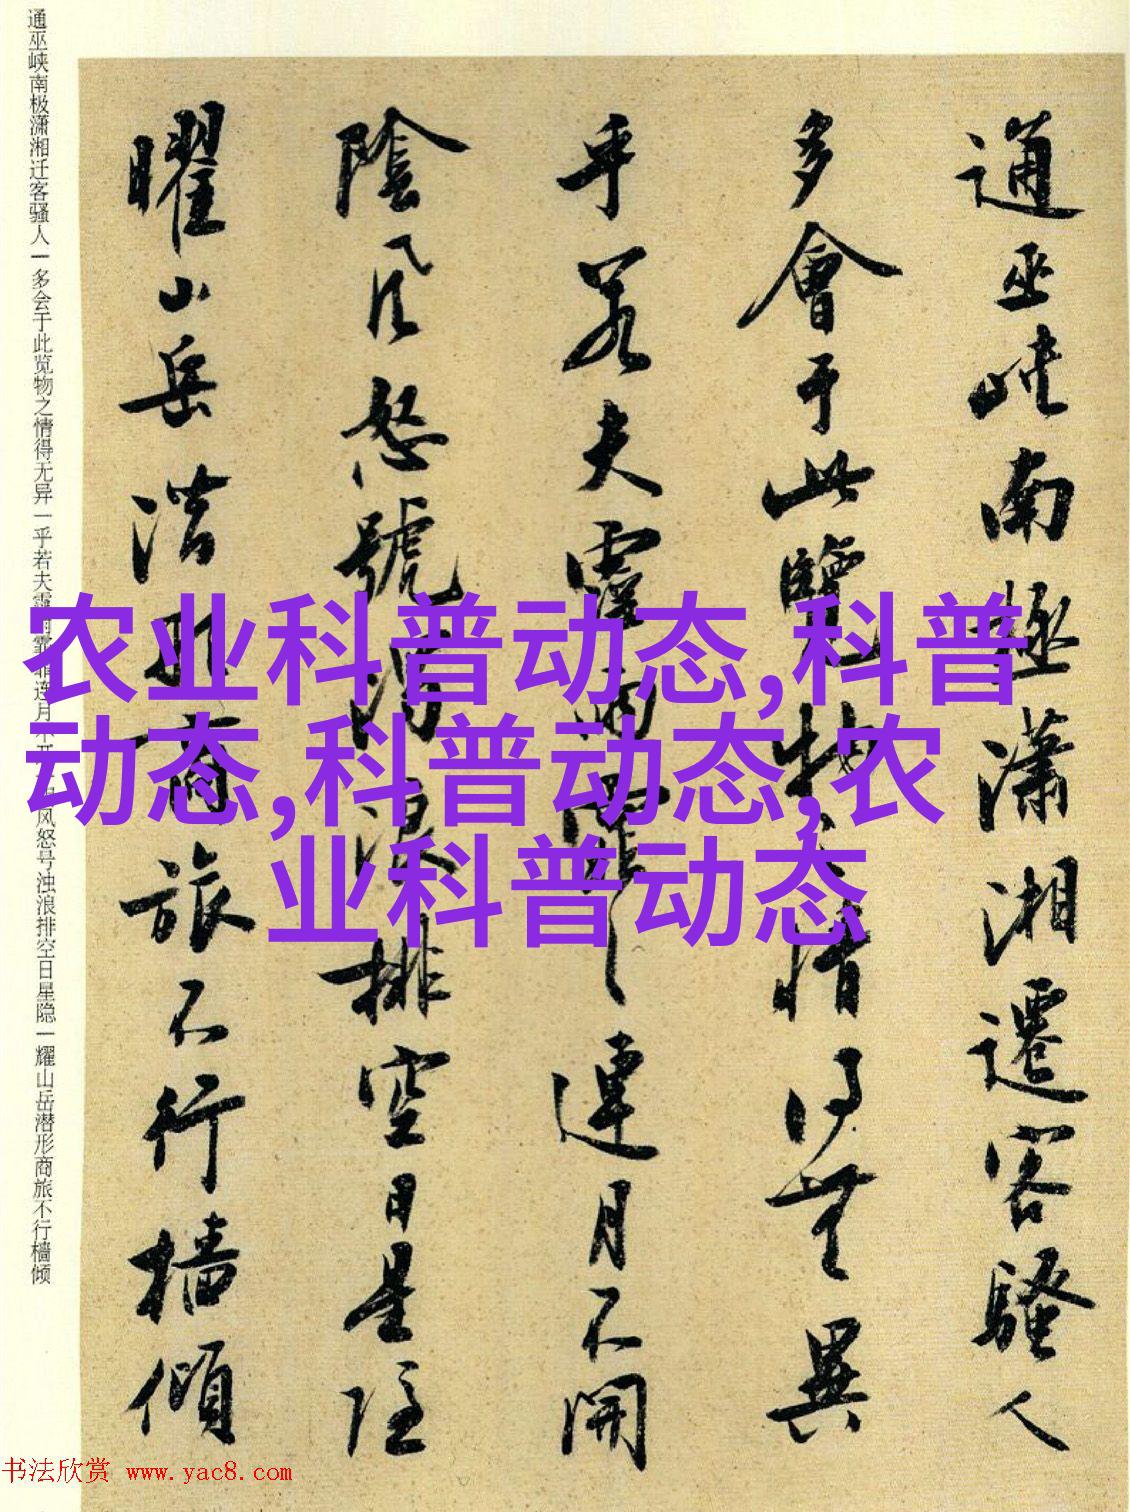 通巫峡南極瀟湘遷客騷人
多會于此覽物之情得無異
乎若夫霪雨霏霏連月不開
陰風怒號濁浪排空日星隱
曜山岳潛形商旅不行檣傾
通巫峡南极潇湘迁客骚人一多会于此览物之情得无异一乎若夫霪雨霏霏连月不开一阴风怒号浊浪排空日星隐一耀山岳潜形商旅不行樯倾
农业科普动态,科普
动态,科普动态,农
业科普动态
书法欣赏 www.yac8.com